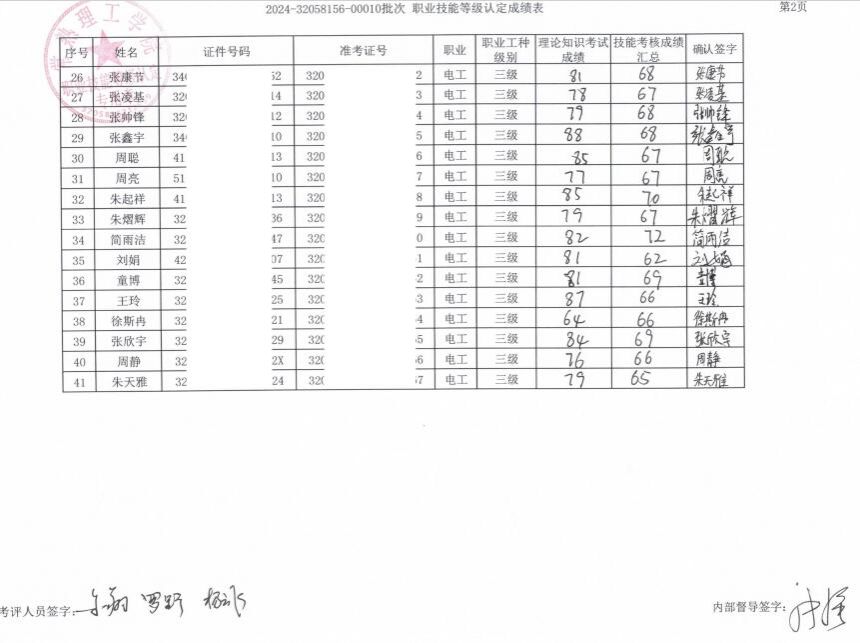 2024-32058156-00010批次 职业技能等级认定成绩表 第2页
常熟理工学院
职业技能等级认定
专用章
序号 姓名 证件号码 准考证号 职业 职业工种级别 理论知识考试成绩 技能考核成绩汇总 确认签字
26 张康节 340 52 320 2 电工 三级 81 68 张康节
27 张凌基 320 14 320 3 电工 三级 78 67 张凌基
28 张帅锋 320 12 320 4 电工 三级 79 68 张帅锋
29 张鑫宇 340 10 320 5 电工 三级 88 68 张鑫宇
30 周聪 41 13 320 6 电工 三级 85 67 周聪
31 周亮 51 10 320 7 电工 三级 77 67 周亮
32 朱起祥 41 13 320 8 电工 三级 85 70 朱起祥
33 朱熠辉 32 36 320 9 电工 三级 79 67 朱熠辉
34 简雨洁 32 47 320 0 电工 三级 82 72 简雨洁
35 刘娟 42 07 320 1 电工 三级 81 62 刘娟
36 童博 32 45 320 2 电工 三级 81 69 童博
37 王玲 32 25 320 3 电工 三级 87 66 王玲
38 徐斯冉 32 21 320 4 电工 三级 64 66 徐斯冉
39 张欣宇 32 29 320 5 电工 三级 84 69 张欣宇
40 周静 32 2X 320 6 电工 三级 76 66 周静
41 朱天雅 32 24 320 7 电工 三级 79 65 朱天雅
考评人员签字:
内部督导签字: